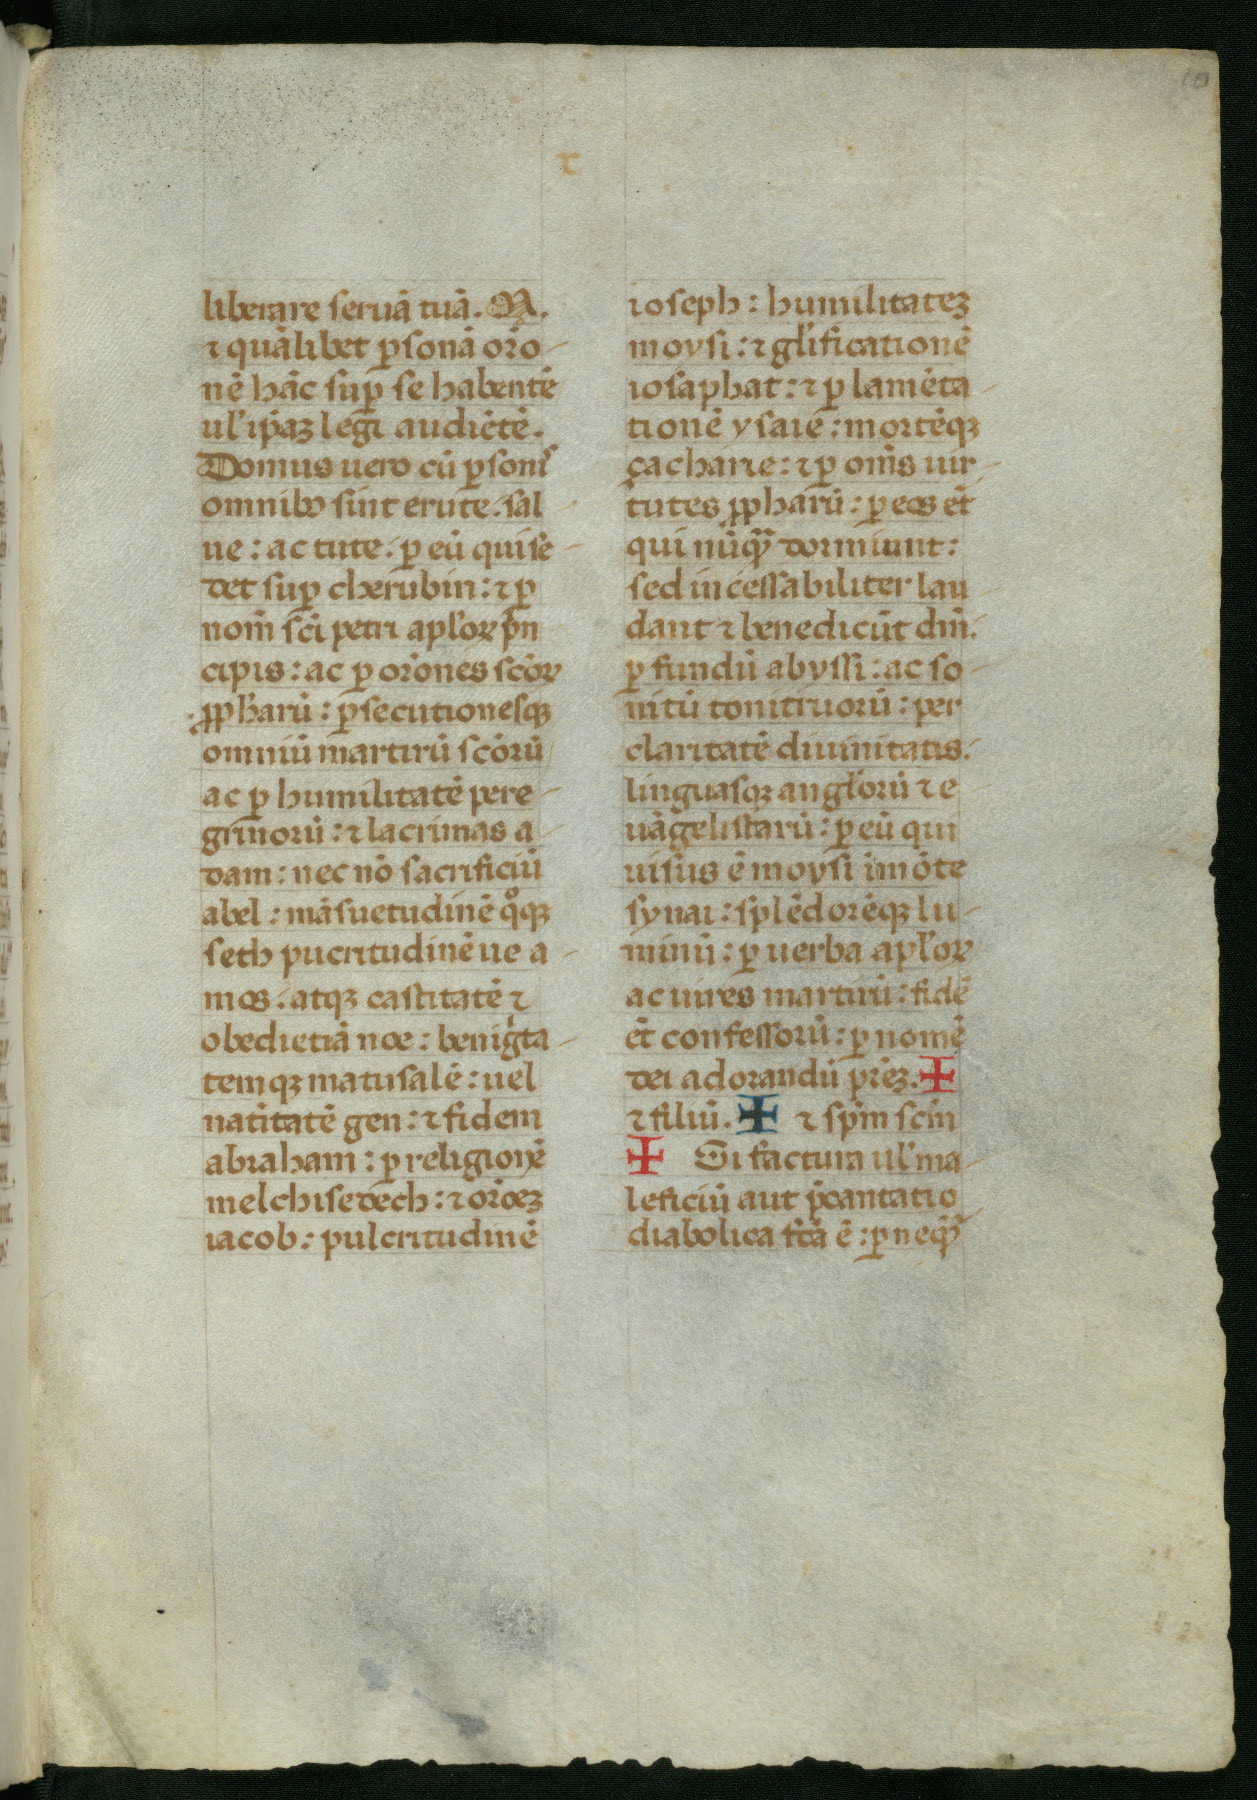 10
x
liberare seruā tuā. N.
⁊ quālibet ꝑsonā or̄o
nē hāc suꝑ se habentē
ul' ip̄aꝫ legi audiētē.
Domus uero cū ꝑsonis
omnibꝰ sint erute: sal
ue: ac tute: ꝑ eū qui se
det suꝑ cherubin: ⁊ ꝑ
nom̄ sc̄i petri apl'oꝝ pn̄
cipis: ac ꝑ or̄ones sc̄oꝝ
ꝓph̄arū: ꝑsecutionesqꝫ
omniū martirū sc̄orū
ac ꝑ humilitatē pere
grinorū: ⁊ lacrimas a
dam: nec nō sacrificiū
abel: māsuetudinē qͦqꝫ
seth pucritudinē ue a
mos: atqꝫ castitatē ⁊
obedietiā noe: benigͥta
temqꝫ matusalē: uel
natītatē gen: ⁊ fidem
abraham: ꝑ religionē
melchisedech: ⁊ or̄oeꝫ
iacob: pulcritudinē
ioseph: humilitateꝫ
moysi: ⁊ gl'ificationē
iosaphat: ⁊ ꝑ lamēta
tionē ysaie: mortēqꝫ
çacharie: ⁊ ꝑ om̄s uir
tutes ꝓph̄arū: ꝑ eos et̄
qui nūqᷓ dormiunt:
sed incessabiliter lau
dant ⁊ benedicūt dn̄i.
ꝑ fundū abyssi: ac so
nitū tonitruorū: per
claritatē diuinitatis.
linguasqꝫ angl'orū ⁊ e
uāgelistarū: ꝑ eū qui
uisus ē moysi ī mōte
synai: splēdorēqꝫ lu
minū: ꝑ uerba apl'oꝝ
ac uires martirū: fidē
et̄ confessorū: ꝑ nomē
dei adorandū pr̄eꝫ. ✠
⁊ filiū. ✠ ⁊ sp̄m sc̄m
✠ Si factura ul' ma
leficiū aut p̄cantatio
diabolica fc̄a ē: ꝑ neqᷓ